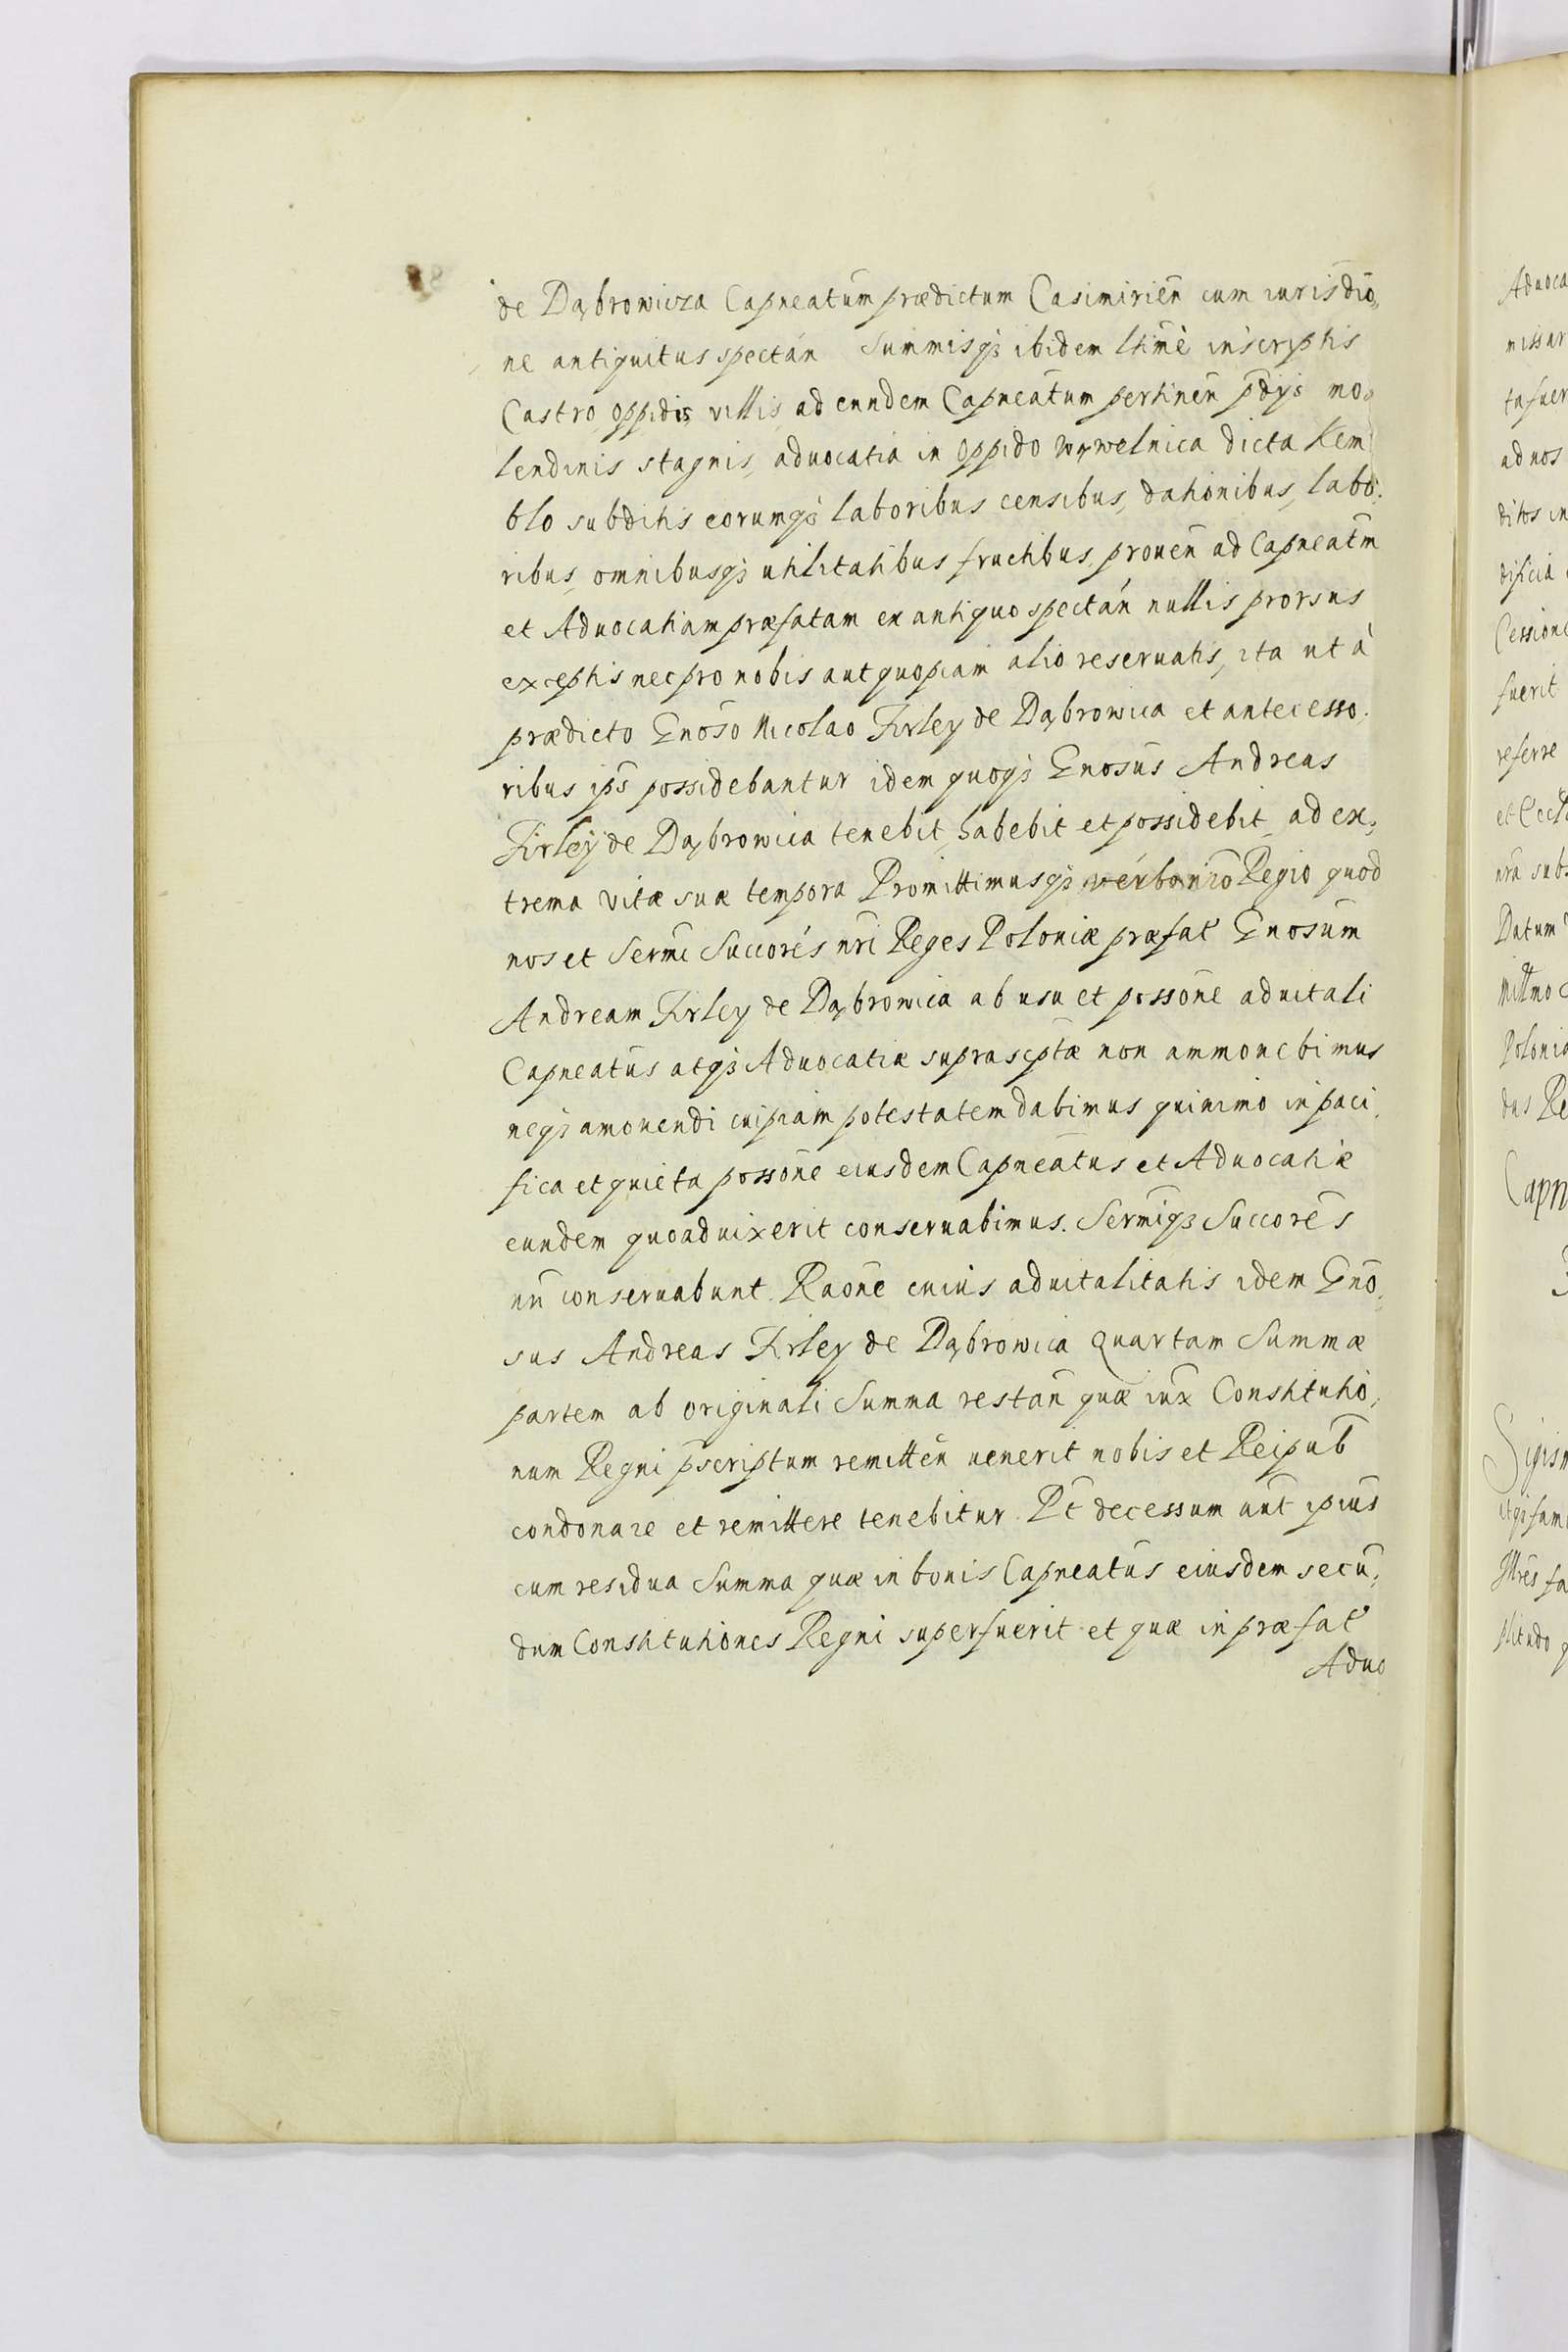 de Dąbrowicza Capneatūm prædictum Casimirien̄ cum iurisdıo,
ne antiquitus spectán Summisqȝ ibidem Ltimè inscriptis
Castro oppidis villis, ad eundem Capneatum pertinen̄ pdÿs mo,
lendinis stagnis, aduocatia in oppido Wąwelnica dicta Kem
blo subditis eorumqȝ laboribus censibus, dationibus, labo.
ribus, omnibusqȝ utilitatibus fructibus, prouen̄ ad Capneatm̄
et Aduocatiam præfatam ex antiquo spectán nullis prorsus
exceptis nec pro nobis aut quopiam alio reseruatis, ita ut à
prædicto Gnoso Nicolao Firley de Dąbrowica et antecesso.
ribus ips̄ possidebantur idem quoqȝ Gnosus Andreas
Firleÿ de Dąbrowica tenebit, habebit et possidebit, ad ex,
trema vitæ suæ tempora Promittimusqȝ verbo nr̄o Regio quod
nos et Serm̄i Succorés nr̄i Reges Poloniæ præfat Gnosum
Andream Firley de Dąbrowica ab usu et possōne aduitali
Capneatūs atqȝ Aduocatiæ suprascptæ non ammonebimus
neqȝ amouendi cuipiam potestatem dabimus quinimo in paci
fica et quieta possōne eiusdem Capneatūs et Aduocatiæ
eundem quoad uixerit conseruabimus. Serm̄iqȝ Succorēs
nr̄i conseruabunt. Raōne cuius aduitalitatis idem Gno,
sus Andreas Firley de Dąbrowica quartam Summæ
partem ab originali Summa restan̄ quæ iux̄ Constitutio,
num Regni p̄scriptum remitten̄ uenerit nobis et Reipub̄
condonare et remittere tenebitur. Pt̄ decessum aut̄ ipius
cum residua Summa quæ in bonis Capneatūs eiusdem secū,
dum Constitutiones Regni superfuerit et quæ in præfat
Aduo
Aduoca
missar
ta fuer
ad nos
ditos in
dificia
Cessione
fuerit
referre
et Eccl
nr̄a subs
Datum
Millmo
Polonia
dus Re
Capn
Sigism
Illres fa